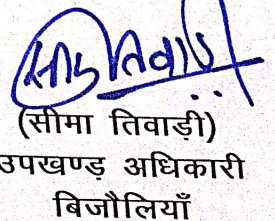 सीमा तिवाड़ी
(सीमा तिवाड़ी)
उपखण्ड अधिकारी
बिजौलियाँ